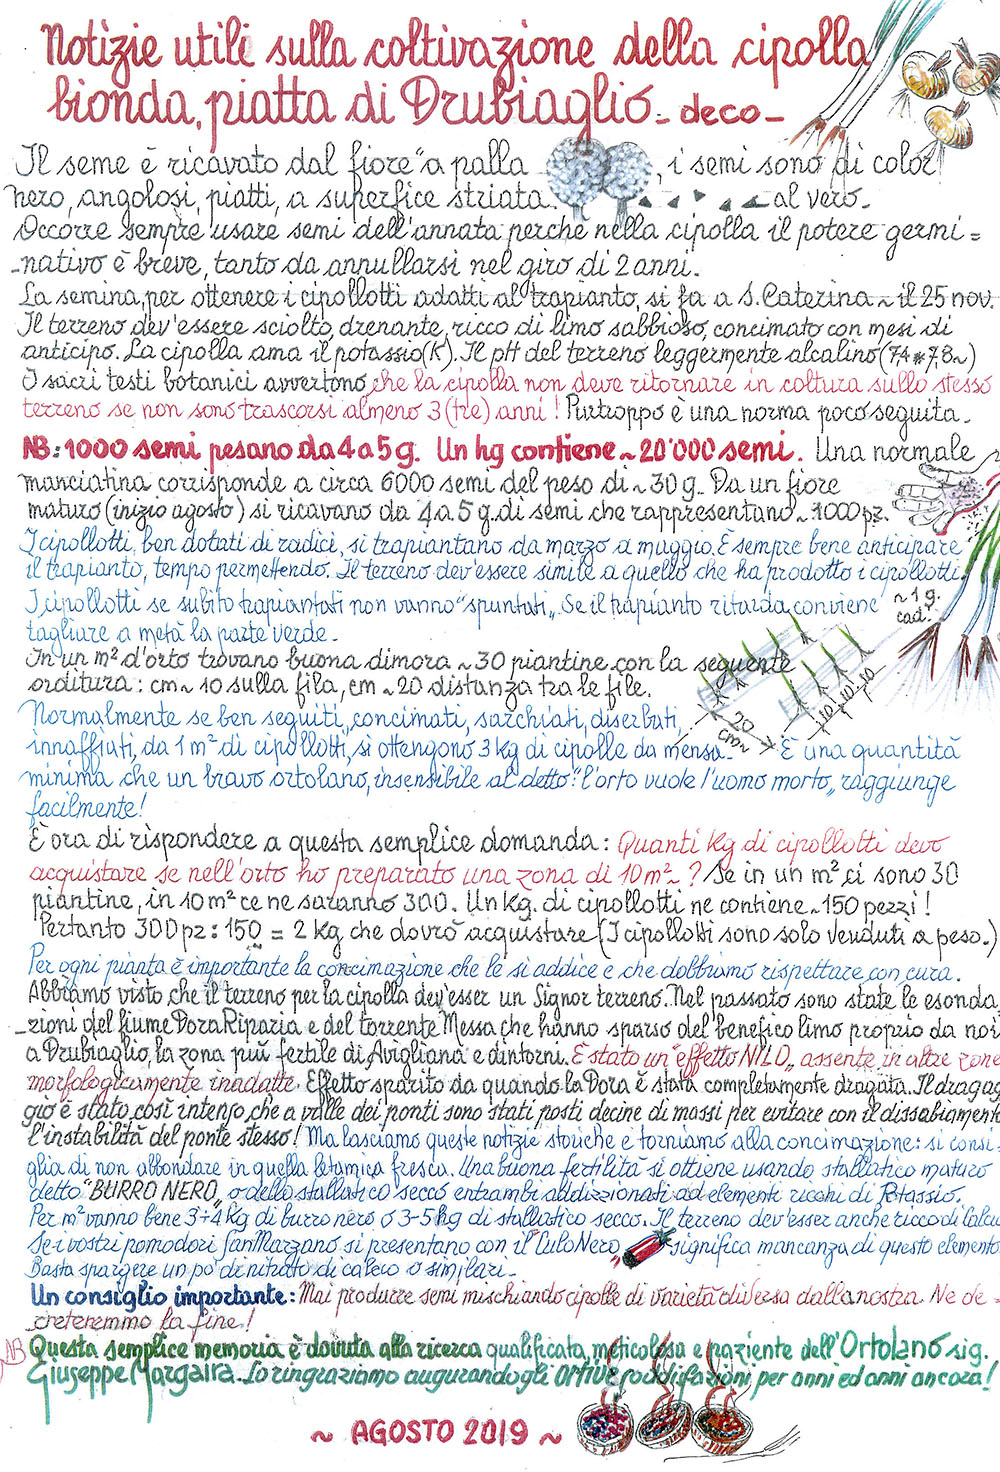 Notizie utili sulla coltivazione della cipolla
bionda, piatta di Drubiaglio - deco -
Il seme è ricavato dal fiore "a palla , i semi sono di color
nero, angolosi, piatti, a superfice striata. al vero.
Occorre sempre usare semi dell'annata perchè nella cipolla il potere germi=
-nativo è breve, tanto da annullarsi nel giro di 2 anni.
La semina, per ottenere i cipollotti adatti al trapianto, si fa a S. Caterina ~ il 25 nov.
Il terreno dev'essere sciolto, drenante, ricco di limo sabbioso, concimato con mesi di
anticipo. La cipolla ama il potassio (K). Il pH del terreno leggermente alcalino (7,4 * 7,8~)
I sacri testi botanici avvertono che la cipolla non deve ritornare in coltura sullo stesso
terreno se non sono trascorsi almeno 3 (tre) anni! Purtroppo è una norma poco seguita.
NB: 1000 semi pesano da 4 a 5 g. Un hg contiene ~ 20'000 semi. Una normale
manciatina corrisponde a circa 6000 semi del peso di ~ 30 g. Da un fiore
maturo (inizio agosto) si ricavano da 4 a 5 g. di semi che rappresentano ~ 1000 pz.
I cipollotti, ben dotati di radici, si trapiantano da marzo a maggio. È sempre bene anticipare
il trapianto, tempo permettendo. Il terreno dev'essere simile a quello che ha prodotto i cipollotti.
I cipollotti se subito trapiantati non vanno "spuntati„. Se il trapianto ritarda conviene
tagliare a metà la parte verde.
~ 1 g.
cad.
In un m² d'orto trovano buona dimora ~ 30 piantine con la seguente
orditura: cm ~ 10 sulla fila, cm ~ 20 distanza tra le file.
10 10 10
20
cm~
Normalmente se ben seguiti, concimati, sarchiati, diserbati,
innaffiati, da 1 m² di cipollotti, si ottengono 3 kg di cipolle da mensa. È una quantità
minima che un bravo ortolano, insensibile al detto: "l'orto vuole l'uomo morto„ raggiunge
facilmente!
È ora di rispondere a questa semplice domanda: Quanti kg di cipollotti devo
acquistare se nell'orto ho preparato una zona di 10 m² ~? Se in un m² ci sono 30
piantine, in 10 m² ce ne saranno 300. Un Kg. di cipollotti ne contiene ~ 150 pezzi!
Pertanto 300 pz : 150 = 2 kg che dovrò acquistare (I cipollotti sono solo venduti a peso.)
Per ogni pianta è importante la concimazione che le si addice e che dobbiamo rispettare con cura.
Abbiamo visto che il terreno per la cipolla dev'esser un Signor terreno. Nel passato sono state le esonda
-zioni del fiume Dora Riparia e del torrente Messa che hanno sparso del benefico limo proprio da noi
a Drubiaglio, la zona più fertile di Avigliana e dintorni. È stato un "effetto NILO„ assente in altre zone
morfologicamente inadatte. Effetto sparito da quando la Dora è stata completamente dragata. Il dragag
gio è stato così intenso, che a valle dei ponti sono stati posti decine di massi per evitare con il dissabiamento
l'instabilità del ponte stesso! Ma lasciamo queste notizie storiche e torniamo alla concimazione: si consi=
glia di non abbondare in quella letamica fresca. Una buona fertilità si ottiene usando stallatico maturo
detto "BURRO NERO„ o dello stallatico secco entrambi addizzionati ad elementi ricchi di Potassio.
Per m² vanno bene 3÷4 kg di burro nero o 3-5 hg di stallatico secco. Il terreno dev'esser anche ricco di Calcio
Se i vostri pomodori San Marzano si presentano con il Culo Nero significa mancanza di questo elemento
Basta spargere un pò di nitrato di calcio o similari.
Un consiglio importante: Mai produrre semi mischiando cipolle di varietà diversa dalla nostra. Ne de-
creteremmo la fine!
NB Questa semplice memoria è dovuta alla ricerca qualificata, meticolosa e paziente dell'Ortolano sig.
Giuseppe Margaira. Lo ringraziamo augurandogli ORTIVE soddisfazioni per anni ed anni ancora!
~ AGOSTO 2019 ~